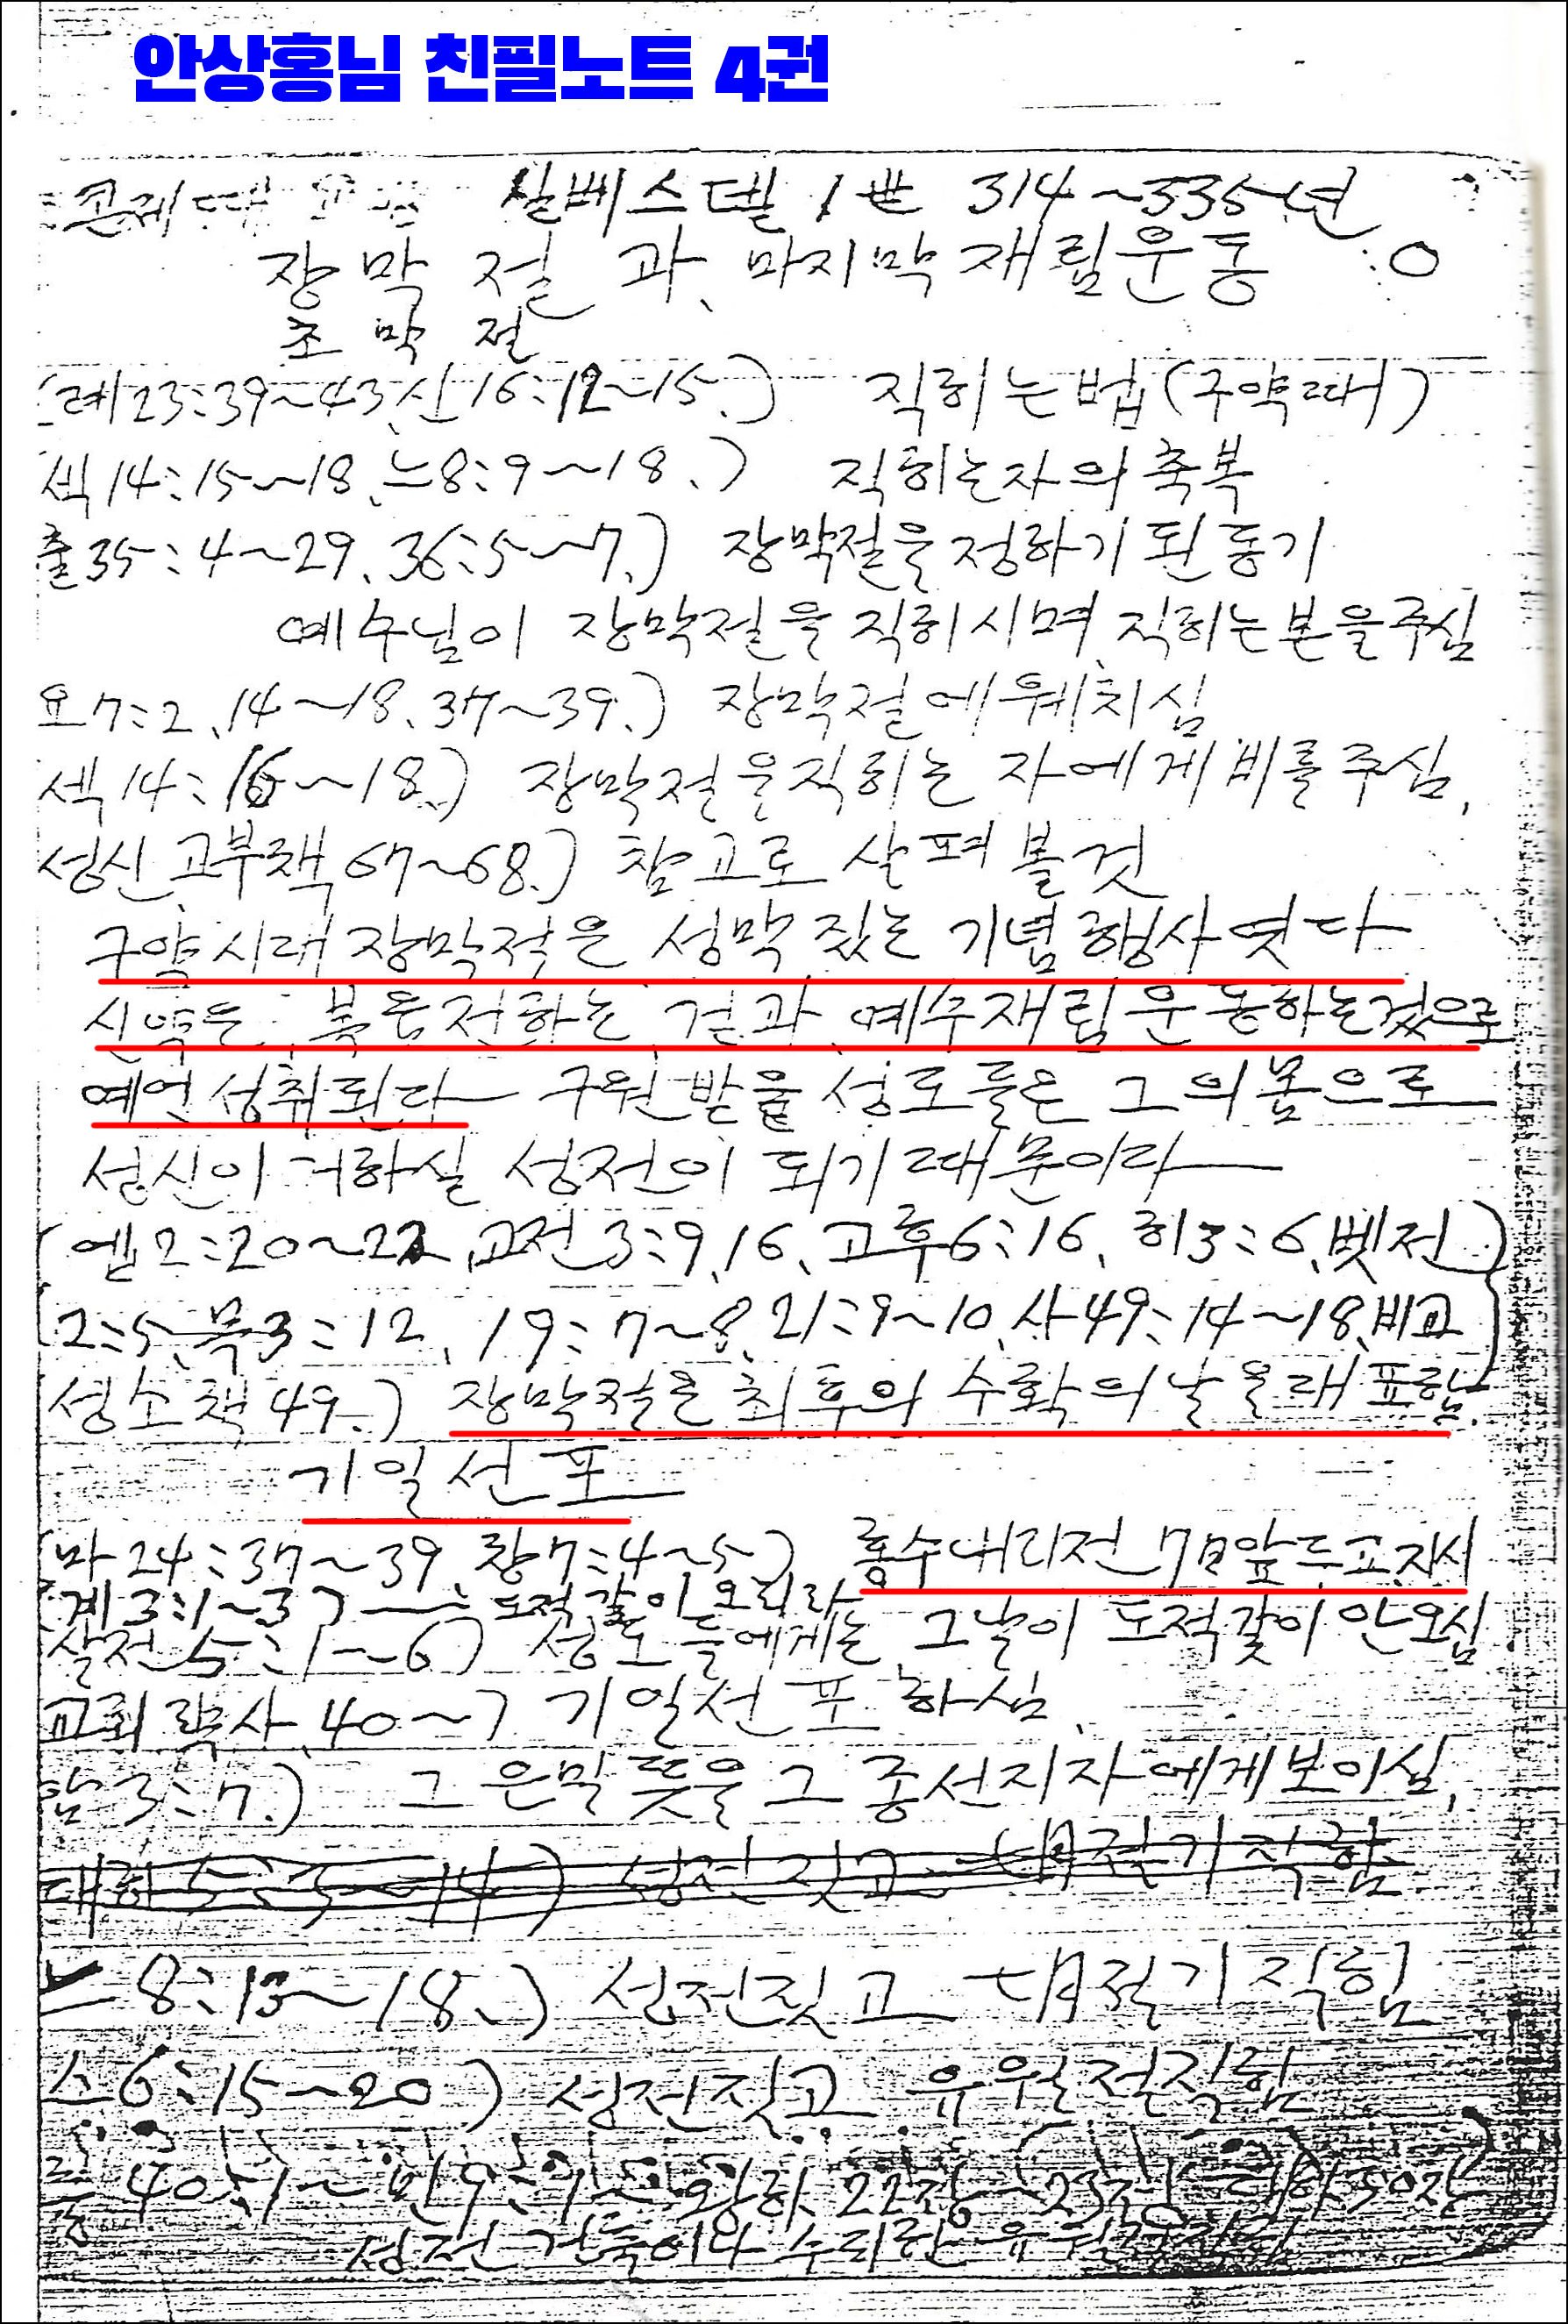 안상홍님 친필노트 4권
실베스델 1世 314~335년
장막절과, 마지막 재림운동 ○
초막절
(레23:39~43, 신16:12~15.) 직히는법(구약때)
섹14:15~18, 느8:9~18.) 직히는자의 축복
출35:4~29, 36:5~7.) 장막절을 정하기 된 동기
예수님이 장막절을 직히시며, 직히는 본을 주심
요7:2, 14~18, 37~39.) 장막절에 웨치심
섹14:16~18.) 장막절을 직히는 자에게 비를 주심,
성신, 고부책 67~68.) 참고로 살펴 볼것
구약시대 장막적은 성막 짔는 기념행사엿다
신약은, 복음전하는, 걷과, 예수재림운동하는겄으로
예언성취된다 구원받을 성도들은 그의 몸으로
성신이 거하실 성전이 되기 때문이라
(엡2:20~22, 고전3:9,16, 고후6:16, 히3:6, 벳전)
(2:5, 묵3:12, 19:7~8, 21:9~10, 사49:14~18, 비교
성소책 49.) 장막절은 최후의 수확의 날을 대표함.
기일선포
(마24:37~39, 창7:4~5) 홍수내리전 7日앞두고 지시
(계3:1~3) 도적같이 오리라
살전5:1~6) 성도들에게는, 그날이 도적같이 안오심
교회력사, 40~) 기일선포 하심,
암3:7.) 그 은밀 뜻을 그 종선지자에게 보이심,
대하5:3~14) 성전짓고 七月절기직힘
느8:13~18.) 성전짓고 七月적기직힘
스6:15~20.) 성전짓고 유월절직힘
출40:1~ 민9:1~ 왕하, 22장~23장, 대하30장
성전건축이나 수리한